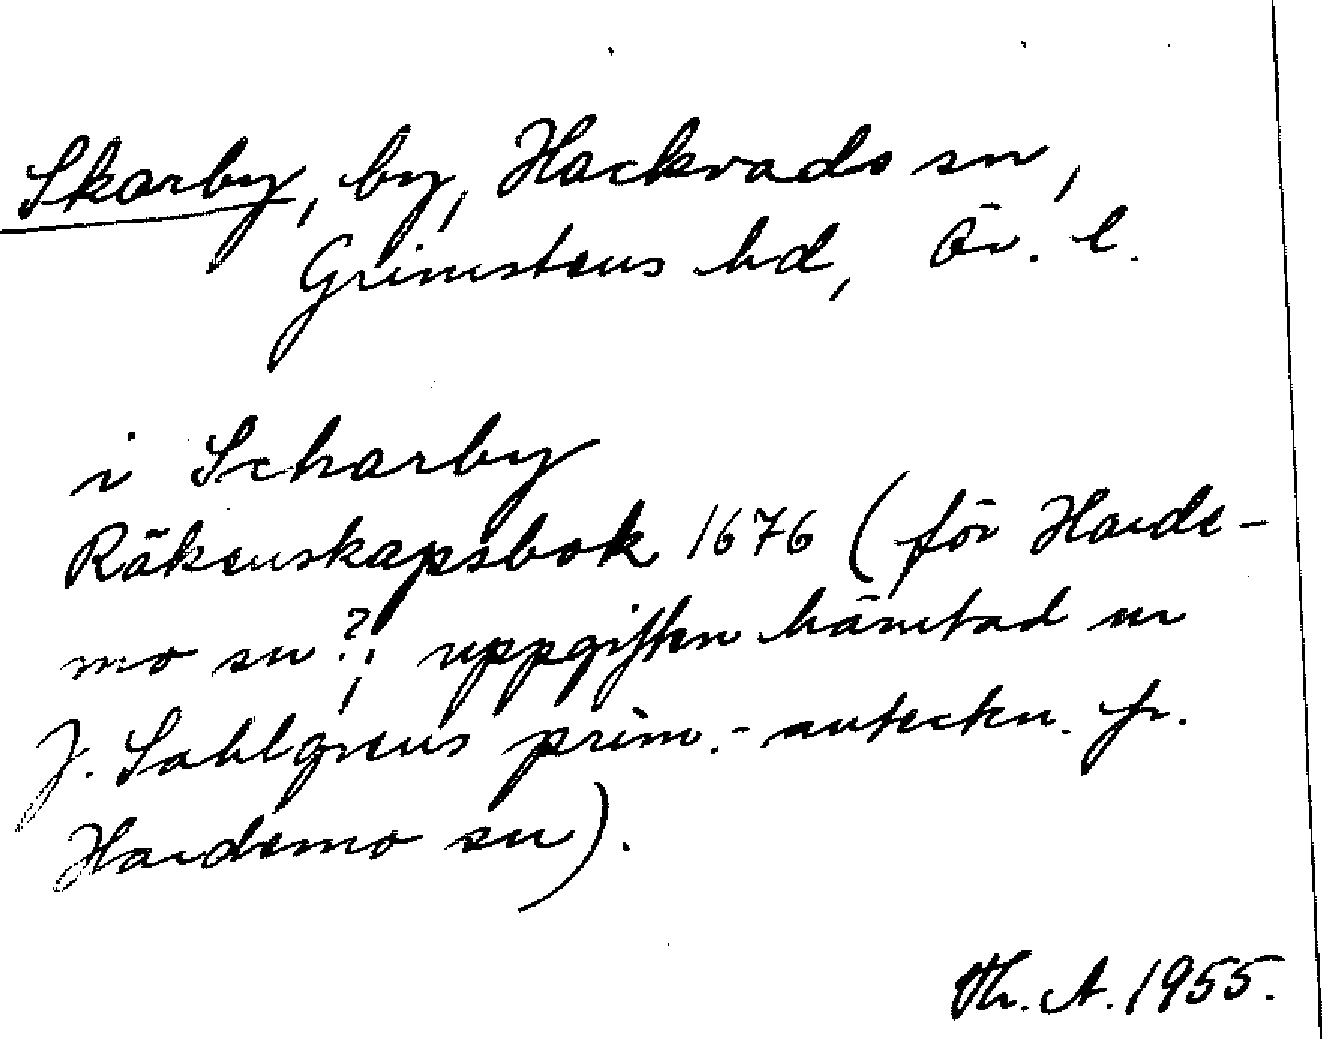 Skarby, by, Hackvads sn,
Grimstens hd, Ör. l.
i Scharby
Räkenskapsbok 1676 (för Harde-
mo sn?; uppgiften hämtad ur
J. Sahlgrens prim.-anteckn. fr.
Hardemo sn).
Th. A. 1955.